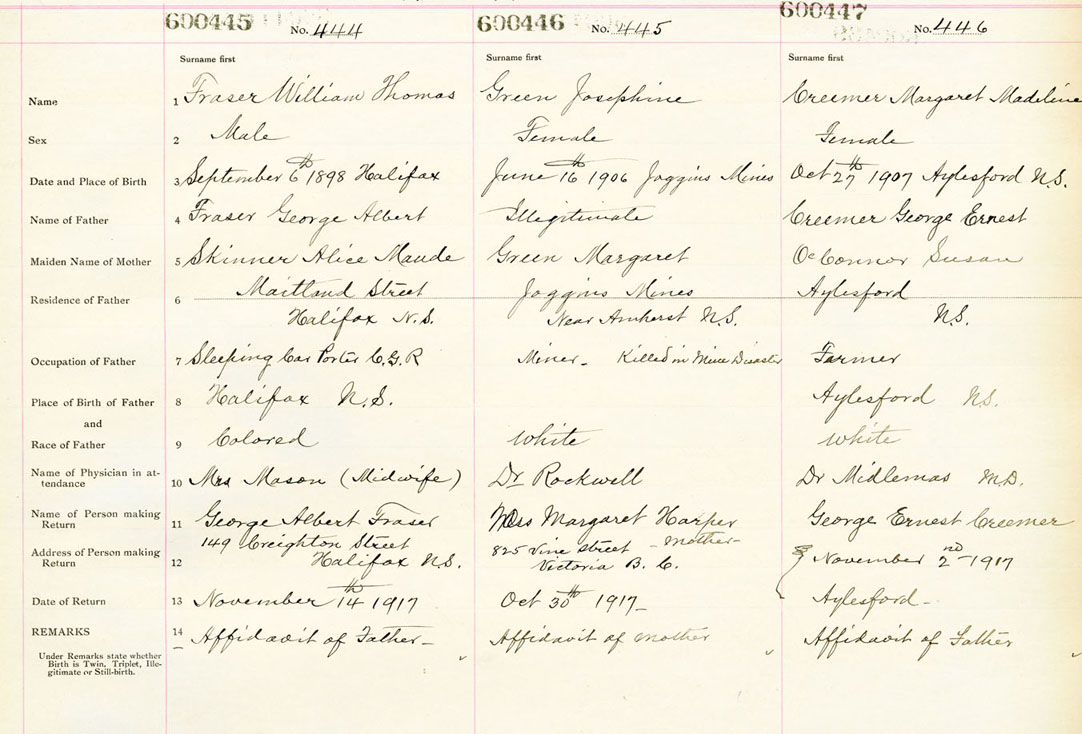 600445 No. 444 600446 No. 445 600447 No. 446
Surname first Surname first Surname first
Name 1 Fraser William Thomas Green Josephine Creemer Margaret Madeline
Sex 2 Male Female Female
Date and Place of Birth 3 September 6th 1898 Halifax June 16th 1906 Joggins Mines Oct 27th 1907 Aylesford N.S.
Name of Father 4 Fraser George Albert Illigitimate Creemer George Ernest
Maiden Name of Mother 5 Skinner Alice Maude Green Margaret O'Connor Susan
Residence of Father 6 Maitland Street Joggins Mines Aylesford
Halifax N.S. Near Amherst N.S. N.S.
Occupation of Father 7 Sleeping Car Porter C.G.R Miner - Killed in Mine Disaster Farmer
Place of Birth of Father 8 Halifax N.S. Aylesford N.S.
and
Race of Father 9 Colored White White
Name of Physician in at-
tendance 10 Mrs Mason (Midwife) Dr Rockwell Dr Midlemas M.D.
Name of Person making
Return 11 George Albert Fraser Margaret Harper George Ernest Creemer
149 Creighton Street 825 Vine Street - Mother-
Address of Person making
Return 12 Halifax N.S. Victoria B.C. November 2nd 1917
Date of Return 13 November 14th 1917 Oct 30th 1917- Aylesford-
REMARKS 14 Affidavit of Father- Affidavit of Mother Affidavit of Father
Under Remarks state whether
Birth is Twin, Triplet, Ille-
gitimate or Still-birth.